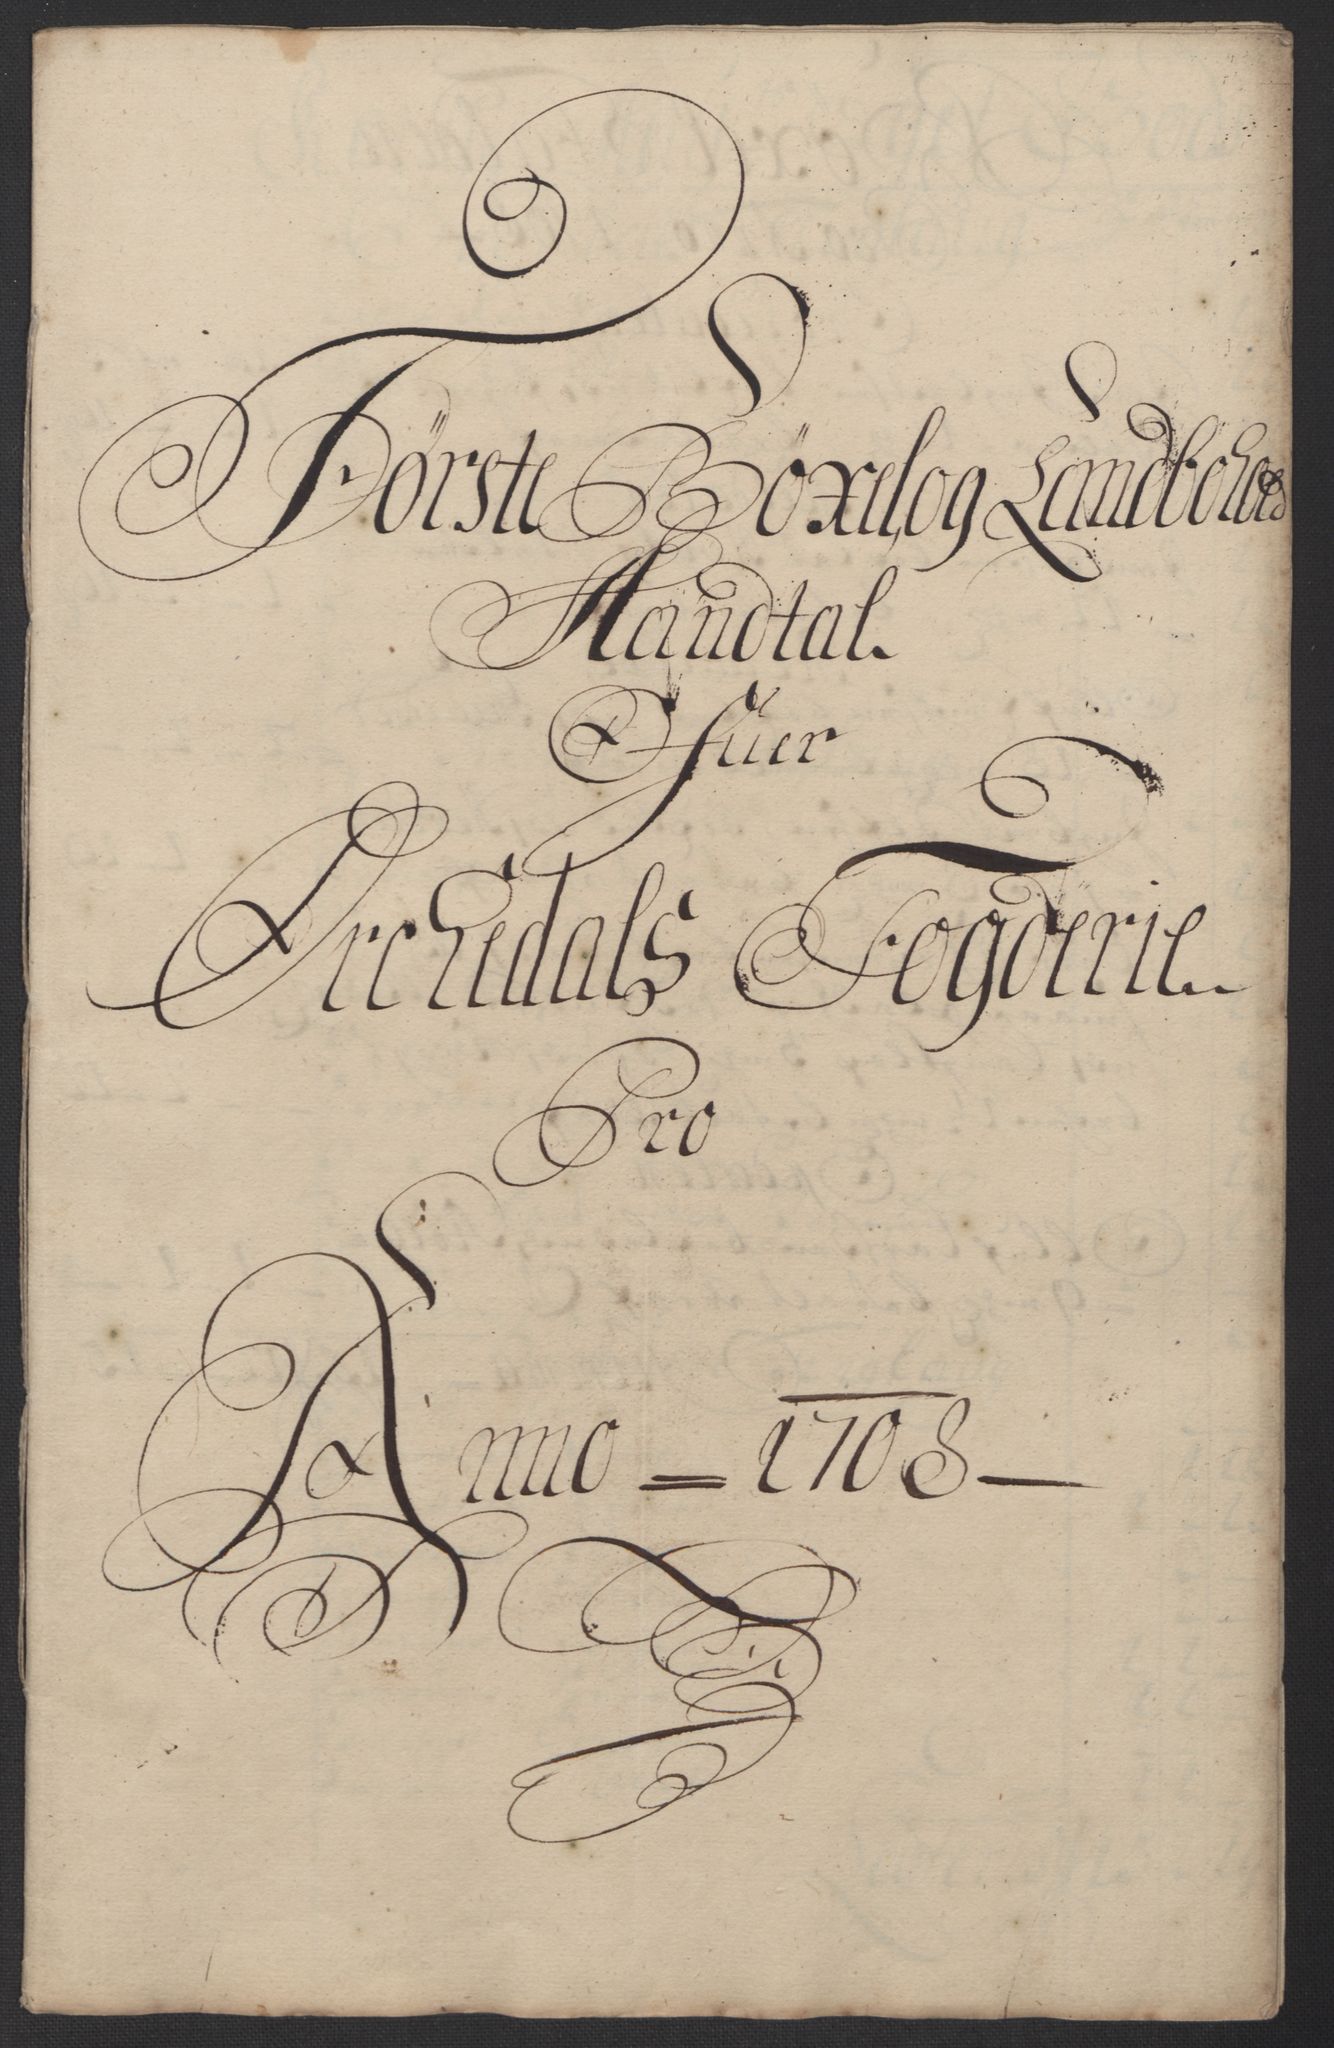 Förste Böxel, og Landbohols
Mandtal.
Ofuer
Orchedals Fogderie.
Pro
Anno = 1708 —